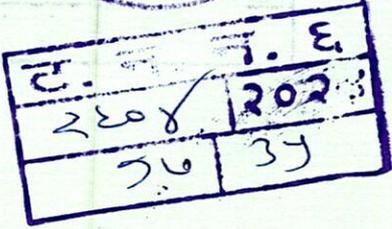 ट. न. ६
२६०४ / २०२३
१७ ३५